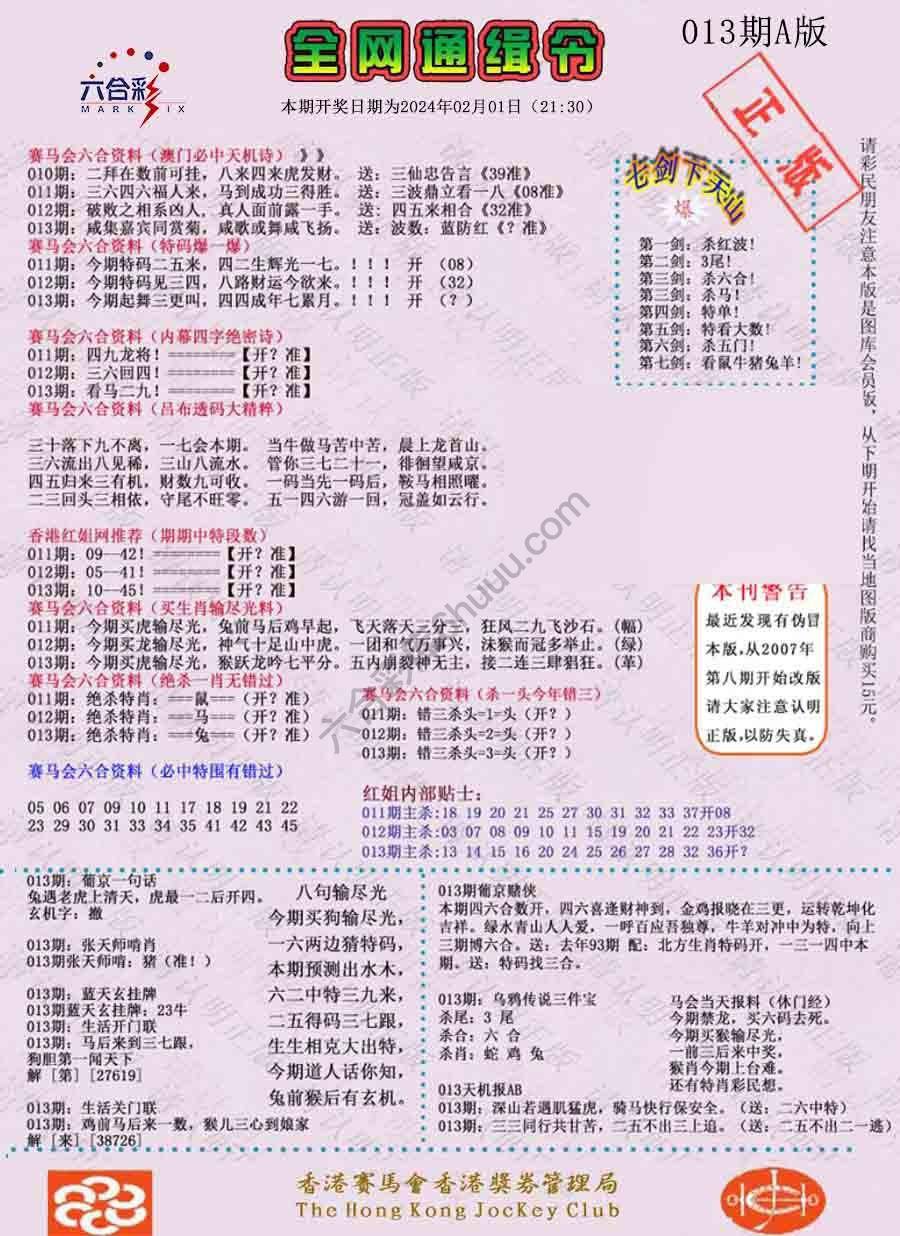 013期A版
全网通缉令
六合彩
MARK SIX
本期开奖日期为2024年02月01日（21:30）
正版
赛马会六合资料（澳门必中天机诗）》》
010期：二拜在数前可挂，八来四来虎发财。 送：三仙忠告言《39准》
011期：三六四六福人来，马到成功三得胜。 送：三波鼎立看一八《08准》
012期：破败之相系凶人，真人面前露一手。 送：四五来相合《32准》
013期：咸集嘉宾同赏菊，咸歌或舞咸飞扬。 送：波数：蓝防红《？准》
赛马会六合资料（特码爆一爆）
011期：今期特码二五来，四二生辉光一七。！！！ 开 （08）
012期：今期特码见三四，八路财运今欲来。！！！ 开 （32）
013期：今期起舞三更叫，四四成年七累月。！！！ 开 （？）
赛马会六合资料（内幕四字绝密诗）
011期：四九龙将！========【开？准】
012期：三六回四！========【开？准】
013期：看马二九！========【开？准】
赛马会六合资料（吕布透码大精粹）
三十落下九不离，一七会本期。 当牛做马苦中苦，晨上龙首山。
三六流出八见稀，三山八流水。 管你三七二十一，徘徊望咸京。
四五归来三有机，财数九可收。 一码当先一码后，鞍马相照曜。
二三回头三相依，守尾不旺零。 五一四六游一回，冠盖如云行。
七剑下天山
爆
第一剑：杀红波！
第二剑：3尾！
第三剑：杀六合！
第三剑：杀马！
第四剑：特单！
第五剑：特看大数！
第六剑：杀五门！
第七剑：看鼠牛猪兔羊！
请彩民朋友注意本版是图库会员版，从下期开始请找当地图版商购买15元。
香港红姐网推荐（期期中特段数）
011期：09—42！========【开？准】
012期：05—41！========【开？准】
013期：10—45！========【开？准】
赛马会六合资料（买生肖输尽光料）
011期：今期买虎输尽光，兔前马后鸡早起，飞天落天三分三，狂风二九飞沙石。(幅)
012期：今期买龙输尽光，神气十足山中虎。一团和气百事兴，沫猴而冠多举止。(绿)
013期：今期买虎输尽光，猴跃龙吟七平分。五内崩裂神无主，接二连三肆猖狂。(革)
赛马会六合资料（绝杀一肖无错过）
011期：绝杀特肖：===鼠===（开？准）
012期：绝杀特肖：===马===（开？准）
013期：绝杀特肖：===兔===（开？准）
赛马会六合资料（杀一头今年错三）
011期：错三杀头=1=头（开？）
012期：错三杀头=2=头（开？）
013期：错三杀头=3=头（开？）
本刊警告
最近发现有伪冒
本版，从2007年
第八期开始改版
请大家注意认明
正版，以防失真。
赛马会六合资料（必中特围有错过）
05 06 07 09 10 11 17 18 19 21 22
23 29 30 31 33 34 35 41 42 43 45
红姐内部贴士：
011期主杀：18 19 20 21 25 27 30 31 32 33 37开08
012期主杀：03 07 08 09 10 11 15 19 20 21 22 23开32
013期主杀：13 14 15 16 20 24 25 26 27 28 32 36开？
013期：葡京一句话
兔遇老虎上清天，虎最一二后开四。
玄机字：撤
013期：张天师啃肖
013期张天师啃：猪（准！）
013期：蓝天玄挂牌
013期蓝天玄挂牌：23牛
013期：生活开门联
013期：马后来到三七跟，
狗胆第一闻天下
解 [第] [27619]
013期：生活关门联
013期：鸡前马后来一数，猴儿三心到娘家
解 [来] [38726]
八句输尽光
今期买狗输尽光，
一六两边猜特码，
本期预测出水木，
六二中特三九来，
二五得码三七跟，
生生相克大出特，
今期道人话你知，
兔前猴后有玄机。
013期葡京赌侠
本期四六合数开，四六喜逢财神到，金鸡报晓在三更，运转乾坤化
吉祥。绿水青山人人爱，一呼百应吾独尊，牛羊对冲中为特，向上
三期博六合。送：去年93期 配：北方生肖特码开，一三一四中本
期。送：特码找三合。
013期：乌鸦传说三件宝
杀尾：3 尾
杀合：六 合
杀肖：蛇 鸡 兔
马会当天报料（休门经）
今期禁龙，买六码去死。
今期买猴输尽光，
一前三后来中奖，
猴肖今期上台难。
还有特肖彩民想。
013天机报AB
013期：深山若遇肌猛虎，骑马快行保安全。（送：二六中特）
013期：三三同行共甘苦，二五不出三上追。（送：二五不出二一逃）
香港賽馬會香港獎券管理局
The Hong Kong JocKey Club